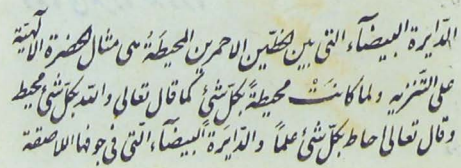 الدايرة البيضآء التى بين الخطّين الاحمرين المحيطَةُ هى مثال الحضرة الآلهيّة
على التّنزيه ولما كانَتْ محيطةً بكلّ شئ كما قال تعالى والله بكلّ شئ محيط
وقال تعالى احاط بكلّ شئ علماً والدّايَرة البيضآء الّتى فى جوفها اللاصقة